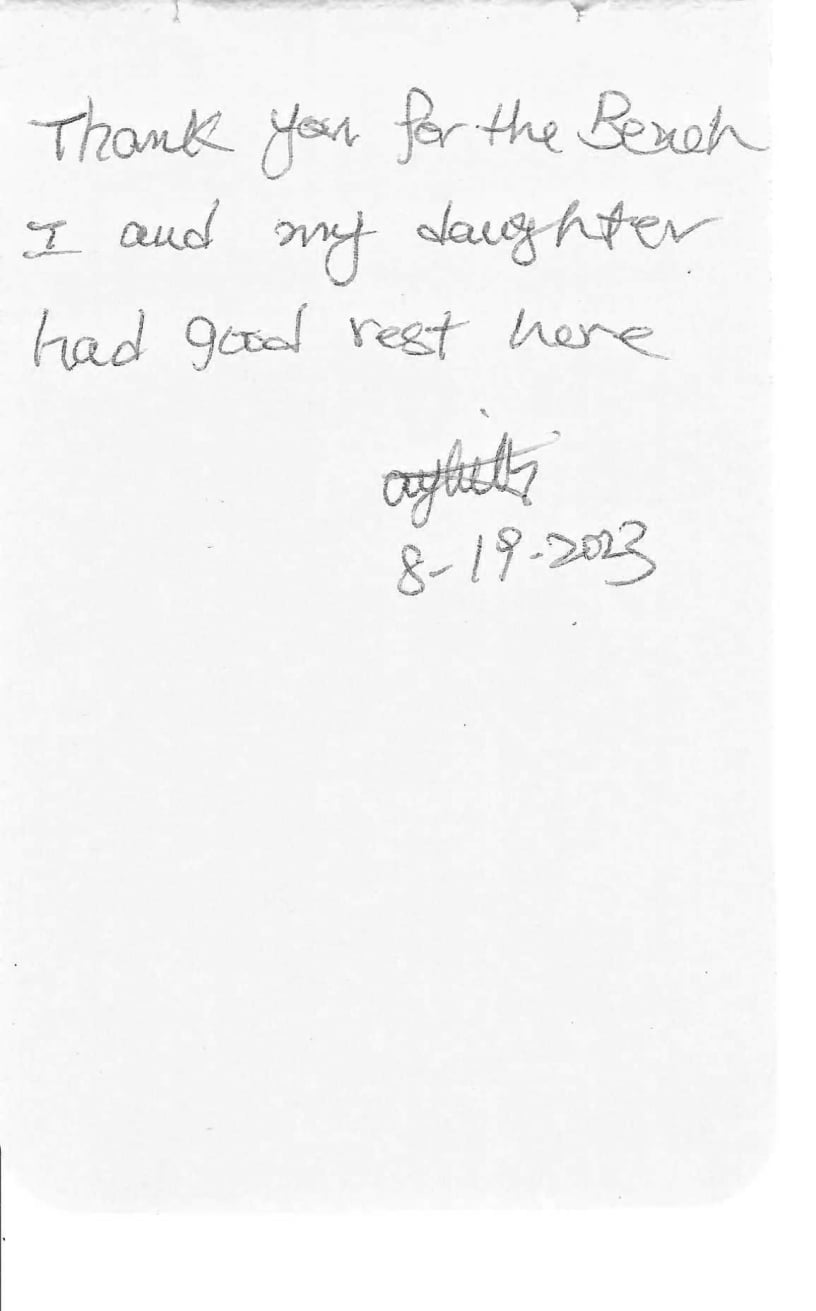 Thank you for the Bench
I and my daughter
had good rest here
8-19-2023